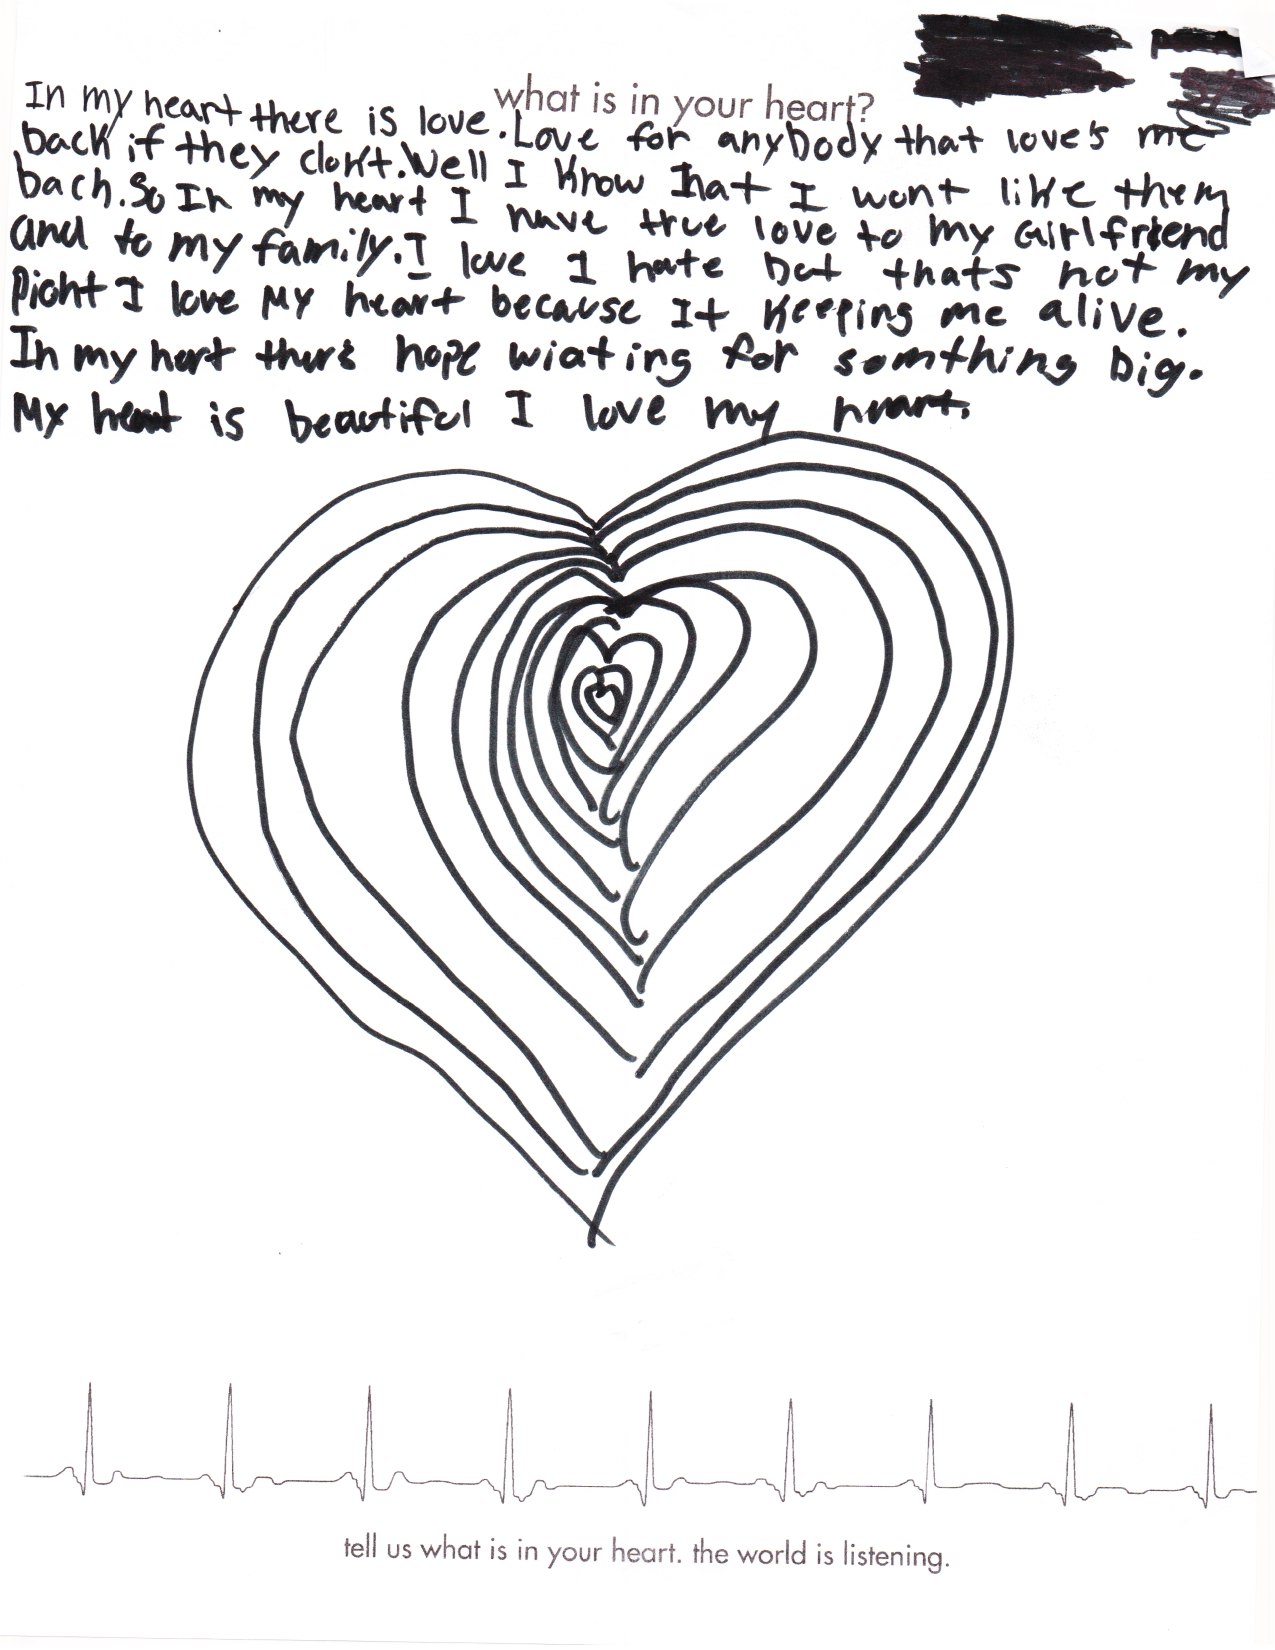 what is in your heart?
In my heart there is love. Love for anybody that love's me
back if they don't. Well I Know that I wont like them
bach. So In my heart I have true love to my Girlfriend
and to my family. I love I hate but thats not my
Pioht I love My heart because It Keeping me alive.
In my hert thers hope wiating for somthing big.
My heart is beautiful I love my heart.
tell us what is in your heart. the world is listening.